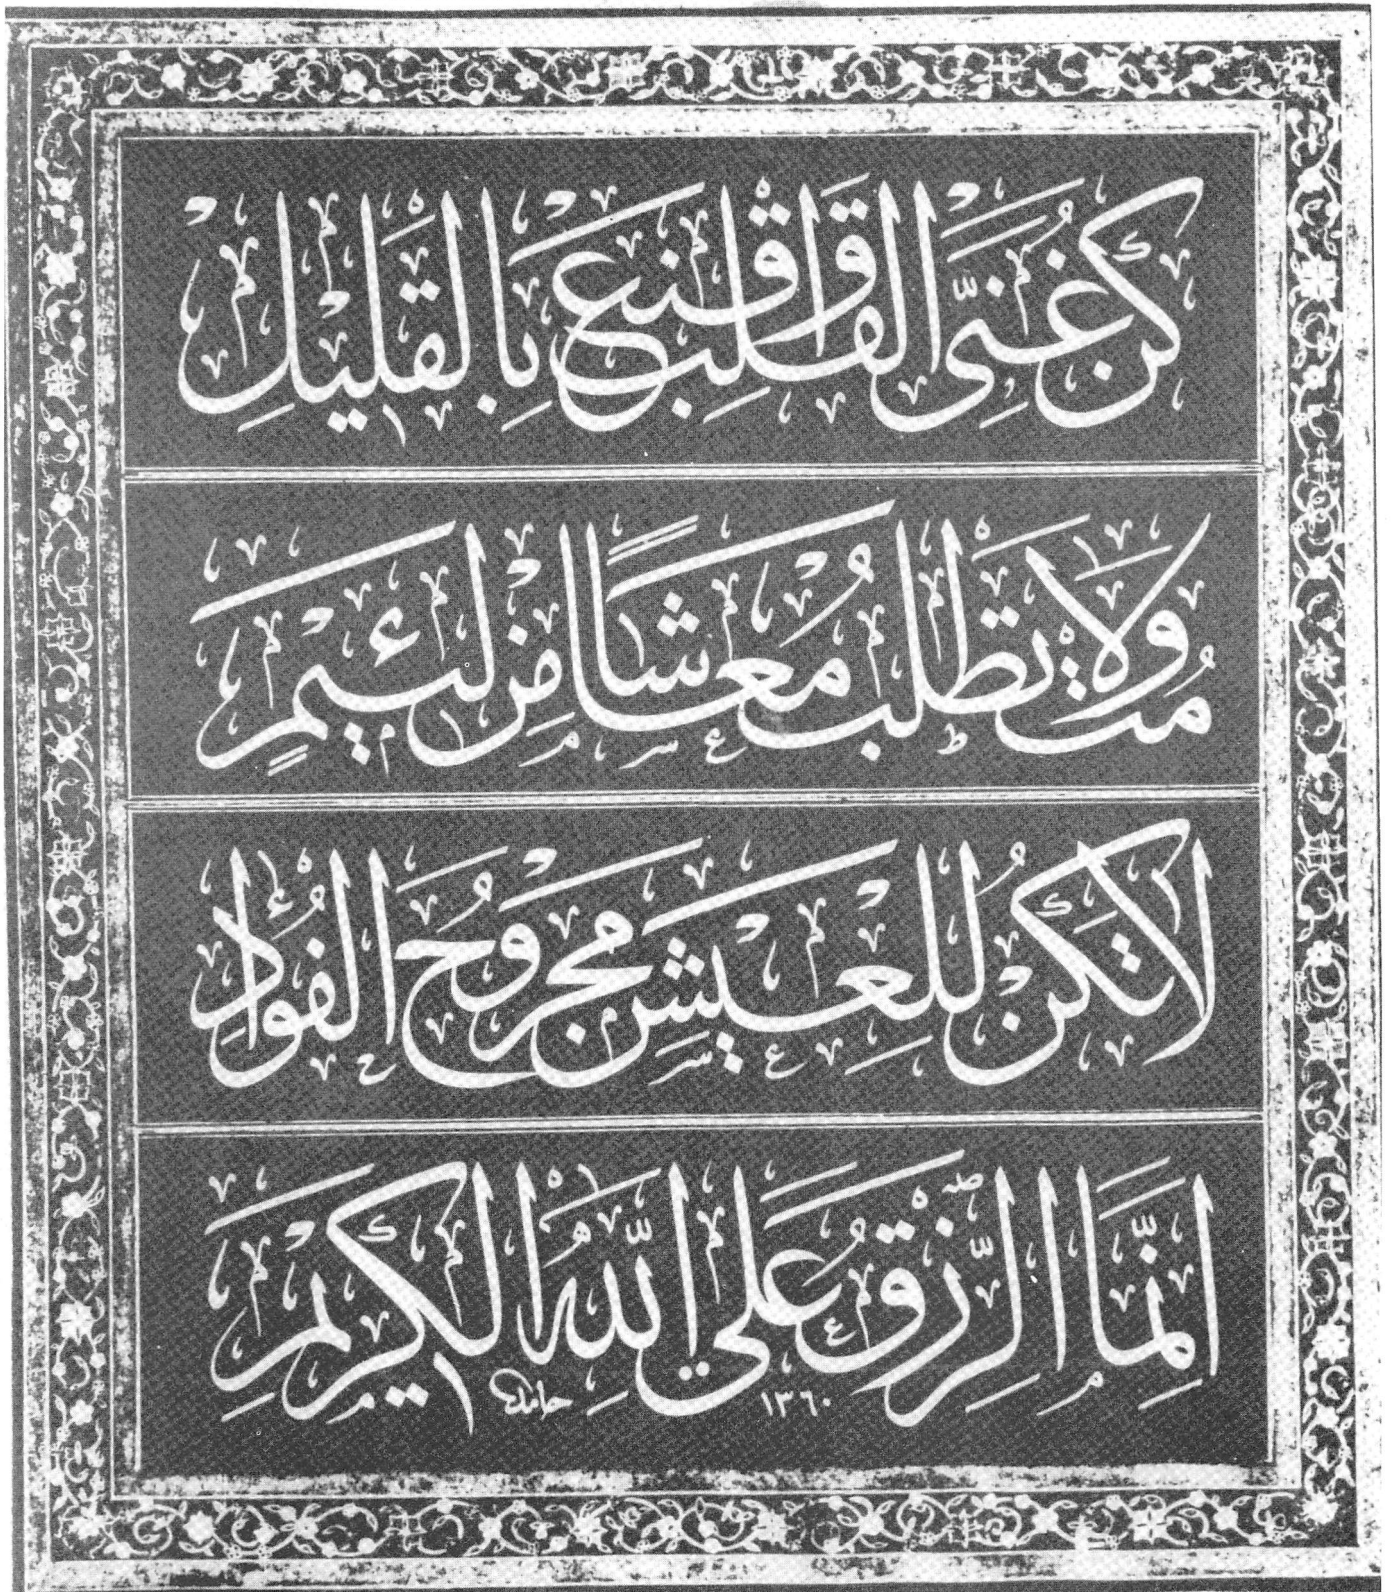 كُنْ غَنِيَّ الْقَلْبِ وَاقْنَعْ بِالْقَلِيلِ
مُتْ وَلَا تَطْلُبْ مَعَاشًا مِنْ لَئِيمٍ
لَا تَكُنْ لِلْعَيْشِ مَجْرُوحَ الْفُؤَادِ
اِنَّمَا الرِّزْقُ عَلَى اللّٰهِ الْكَرِيمِ
١٣٦٠ حامد